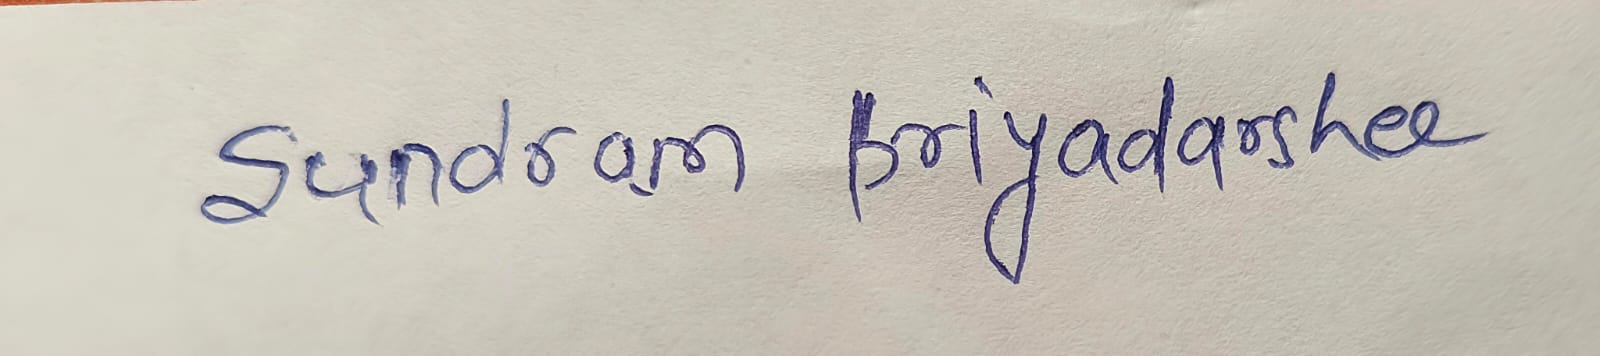 Sundram Priyadarshee